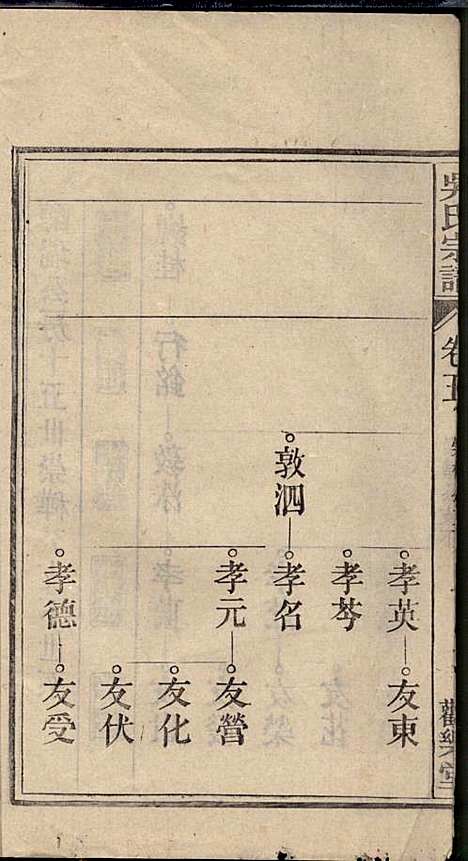 吳氏宗譜
卷五
觀樂堂
孝英
友東
孝芩
敦泗
孝名
孝元
友營
友化
友伏
孝德
友受